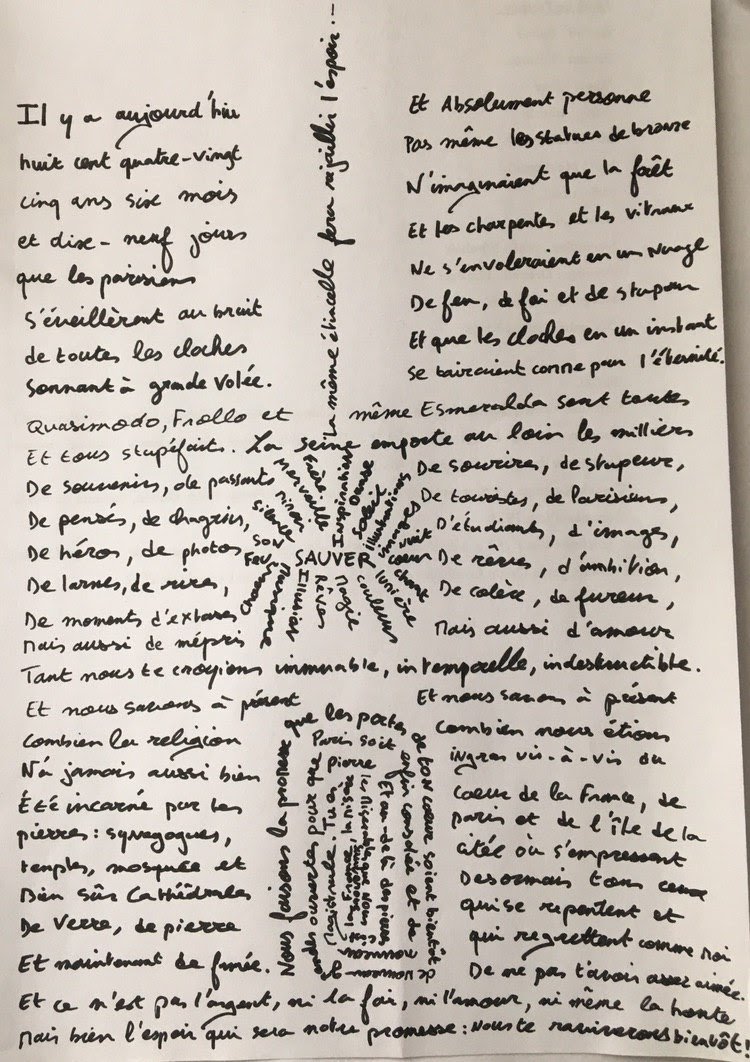 Il y a aujourd'hui
huit cent quatre-vingt
cinq ans six mois
et dix-neuf jours
que les parisiens
S'éveillèrent au bruit
de toutes les cloches
Sonnant à grande volée.
La même étincelle fera rejaillir l'espoir...
Et Absolument personne
Pas même les statues de bronze
N'imaginaient que la forêt
Et les charpentes et les vitraux
Ne s'envoleraient en un nuage
De feu, de foi et de stupeur
Et que les cloches en un instant
Se tairaient comme pour l'éternité.
Quasimodo, Frollo et même Esmeralda sont toutes
Et tous stupéfaits. La seine emporte au loin les milliers
De souvenirs, de passants
De pensés, de chagrins,
De héros, de photos
De larmes, de rires,
De moments d'extases
Mais aussi de mépris
SAUVER
Feu
Son
Silence
Miroir
Merveille
Prière
Inspiration
Danse
Soleil
Illustrations
images
nuit
coeur
chant
lumière
couleurs
Magie
Rêver
Illusion
Murmure
Chaos
De sourires, de stupeur,
De touristes, de Parisiens,
D'étudiants, d'images,
De rêves, d'ambition,
De colère, de fureur,
Mais aussi d'amour
Tant nous te croyions immuable, intemporelle, indestructible.
Et nous savons à présent
Combien la religion
N'a jamais aussi bien
Été incarné par les
pierres: synagogues,
temples, mosquée et
Bien sûr Cathédrales
De Verre, de pierre
Et maintenant de fumée.
Nous faisons la promesse que les portes de ton coeur soient bientôt
grandes ouvertes pour que Paris soit enfin consolée et de
Magistrale. Tu en pierre
Et au-delà des pierres
la France, la Misère
les Misérables que
de nouveau
Et nous savons à présent
Combien nous étions
ingras vis-à-vis du
Coeur de la France, de
paris et de l'île de la
citée où s'empressent
Desormais tous ceux
qui se repentent et
qui regrettent comme moi
De ne pas t'avoir assez aimée.
Et ce n'est pas l'argent, ni la foi, ni l'amour, ni même la honte
Mais bien l'espoir qui sera notre promesse: Nous te raviverons bientôt!